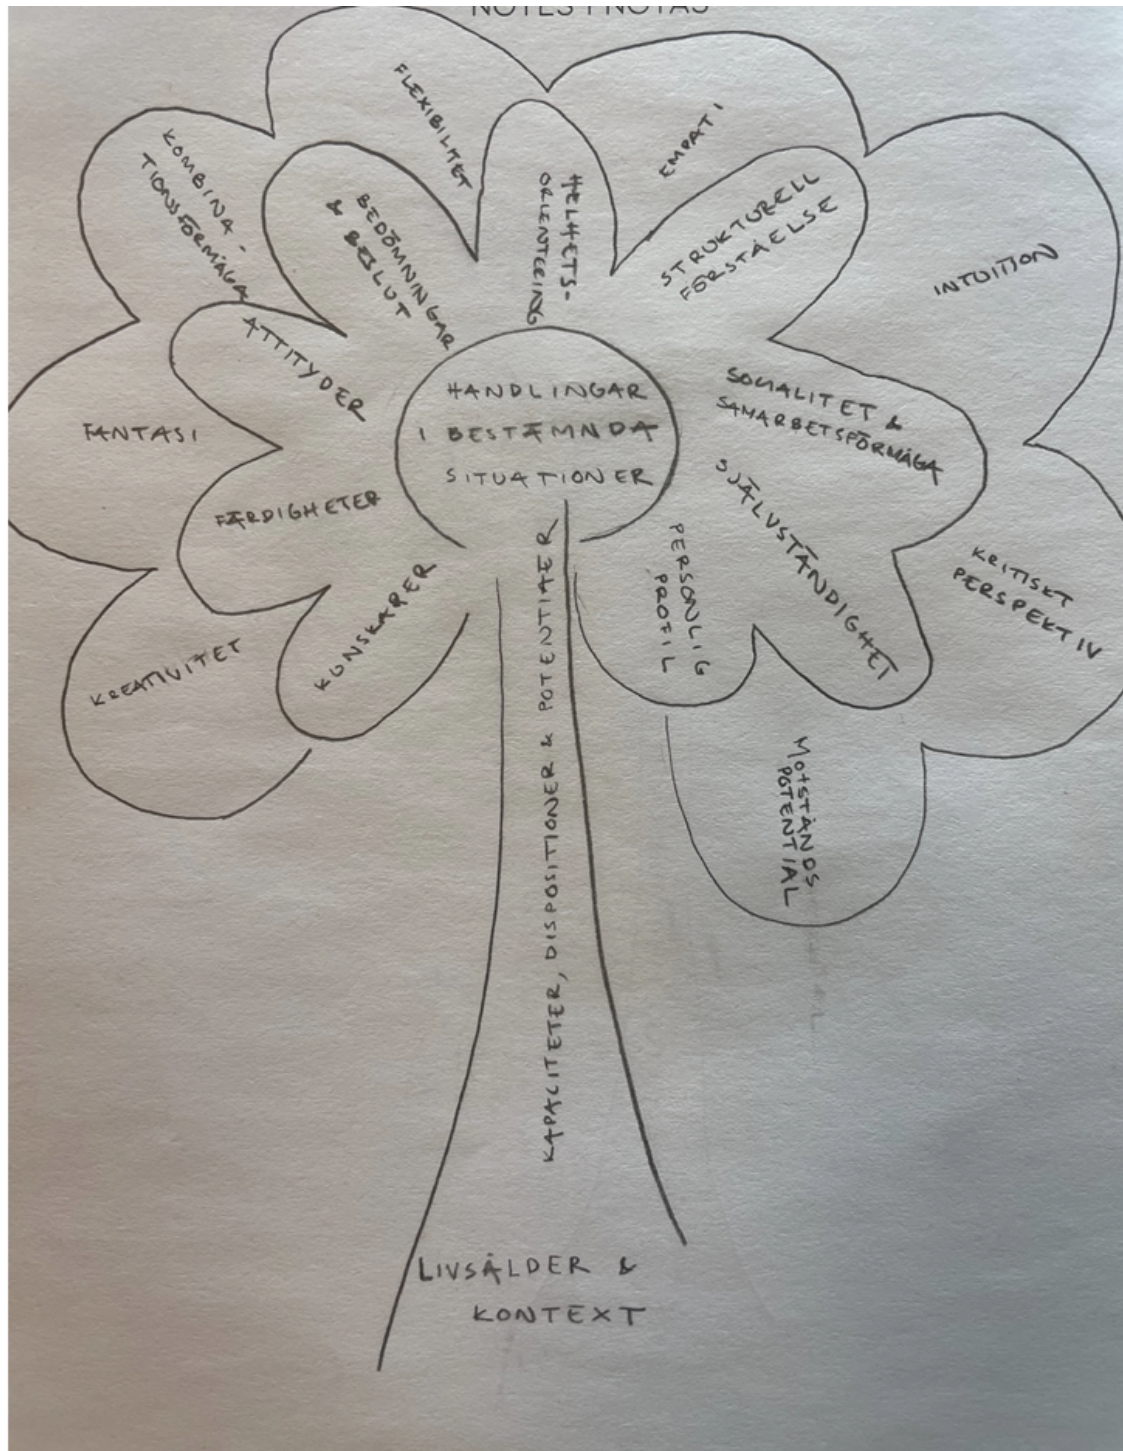 NOTES | NOTAS
FLEXIBILITET
EMPATI
KOMBINA-
TIONSFÖRMÅGA
BEDÖMNINGAR
& BESLUT
HELHETS-
ORIENTERING
STRUKTURELL
FÖRSTÅELSE
INTUITION
ATTITYDER
HANDLINGAR
I BESTÄMNDA
SITUATIONER
SOCIALITET &
SAMARBETSFÖRMÅGA
FANTASI
FÄRDIGHETER
SJÄLVSTÄNDIGHET
PERSONLIG
PROFIL
KRITISKT
PERSPEKTIV
KREATIVITET
KUNSKAPER
KAPACITETER, DISPOSITIONER & POTENTIALER
MOTSTÅNDS
POTENTIAL
LIVSÅLDER &
KONTEXT